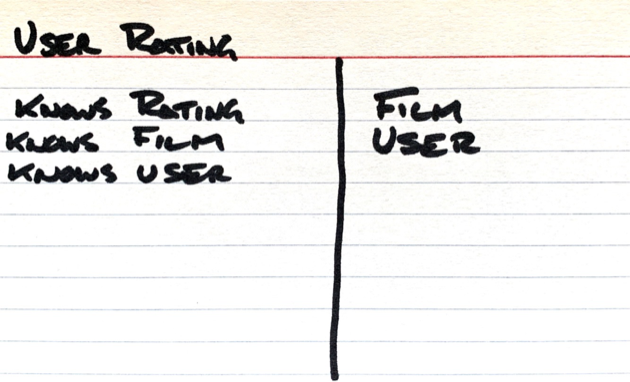 USER RATING
KNOWS RATING
KNOWS FILM
KNOWS USER
FILM
USER